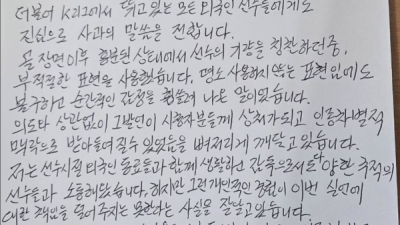 더불어 K리그에서 뛰고있는 모든 외국인 선수들에게도
진심으로 사과의 말씀을 전합니다.
골 장면이후 흥분된 상태에서 선수의 기량을 칭찬하던중,
부적절한 표현을 사용했습니다. 평소 사용하지 않는 표현임에도
불구하고 순간적인 감정에 휩쓸려 나온 말이었습니다.
의도와 상관없이 그발언이 시청자분들께 상처가되고 인종차별적
맥락으로 받아들여질수 있었음을 뼈저리게 깨닫고있습니다.
저는 선수시절 외국인 동료들과 함께 생활하고 감독으로서도 다양한 국적의
선수들과 소통해왔습니다. 하지만 그런 개인적인 경험이 이번 실언에
대한 책임을 덜어주지는 못한다는 사실을 잘알고있습니다.